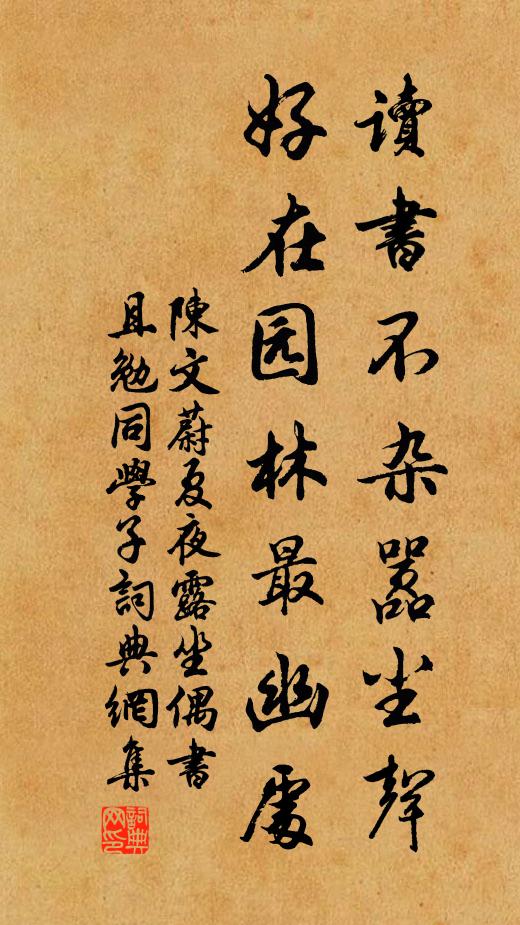 讀書不杂嚣尘聲
好在园林最幽處
陳文蔚夏夜露坐偶書
且勉同學子詞典網集
詞典网印